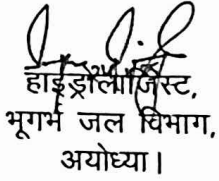 हाइड्रोलॉजिस्ट,
भूगर्भ जल विभाग,
अयोध्या।